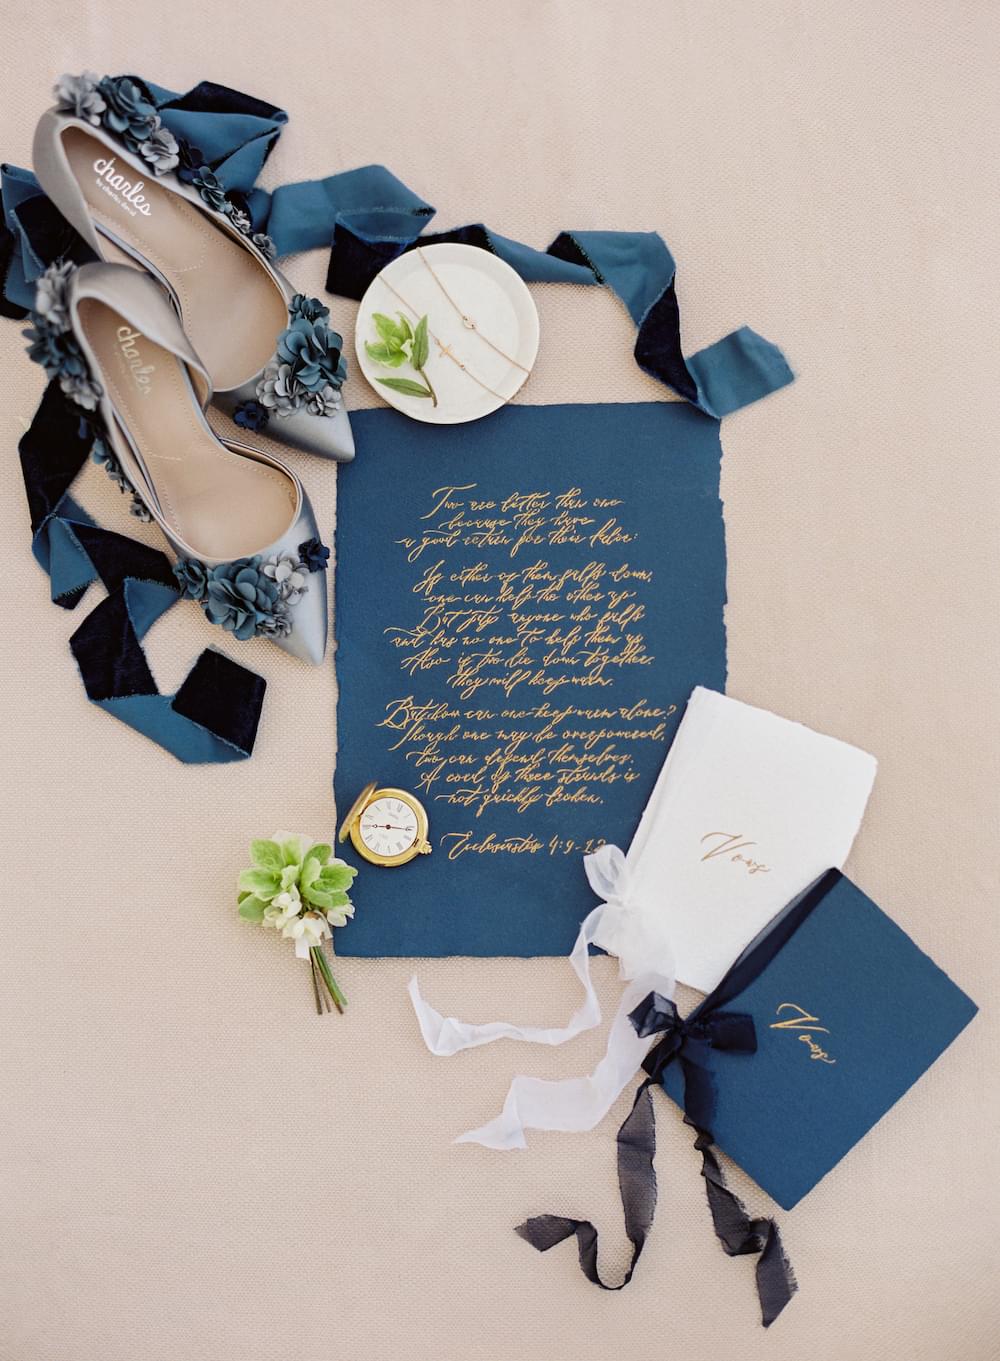 charles
by charles david
charles
Two are better than one
because they have
a good return for their labor:
If either of them falls down,
one can help the other up
But pity anyone who falls
and has no one to help them up
Also if two lie down together,
they will keep warm.
But how can one keep warm alone?
Though one may be overpowered,
two can defend themselves.
A cord of three strands is
not quickly broken.
Ecclesiastes 4:9-12
Vows
Vows